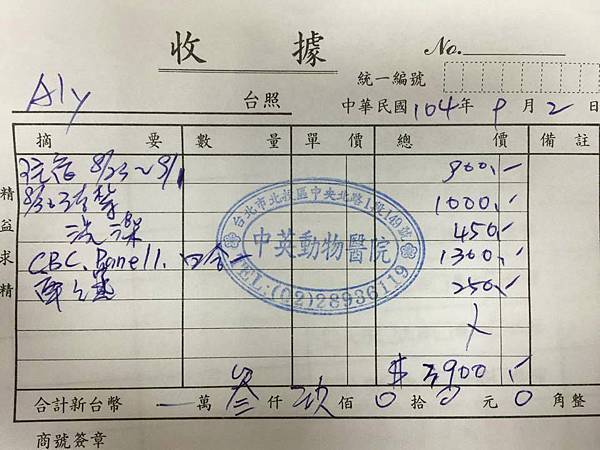 收 據
No.
統一編號
Aly 台照
中華民國 104 年 9 月 2 日
摘 要 數 量 單 價 總 價 備 註
住宿 8/23~9/1 900.-
1000.-
洗澡 450.-
CBC. Panell. 四合一 1300.-
250.-
$ 3900.-
合計新台幣 一 萬 叁 仟 玖 佰 0 拾 0 元 0 角整
精益求精
商號簽章
台北市北投區中央北路1段149號
中英動物醫院
TEL:(02)28936119